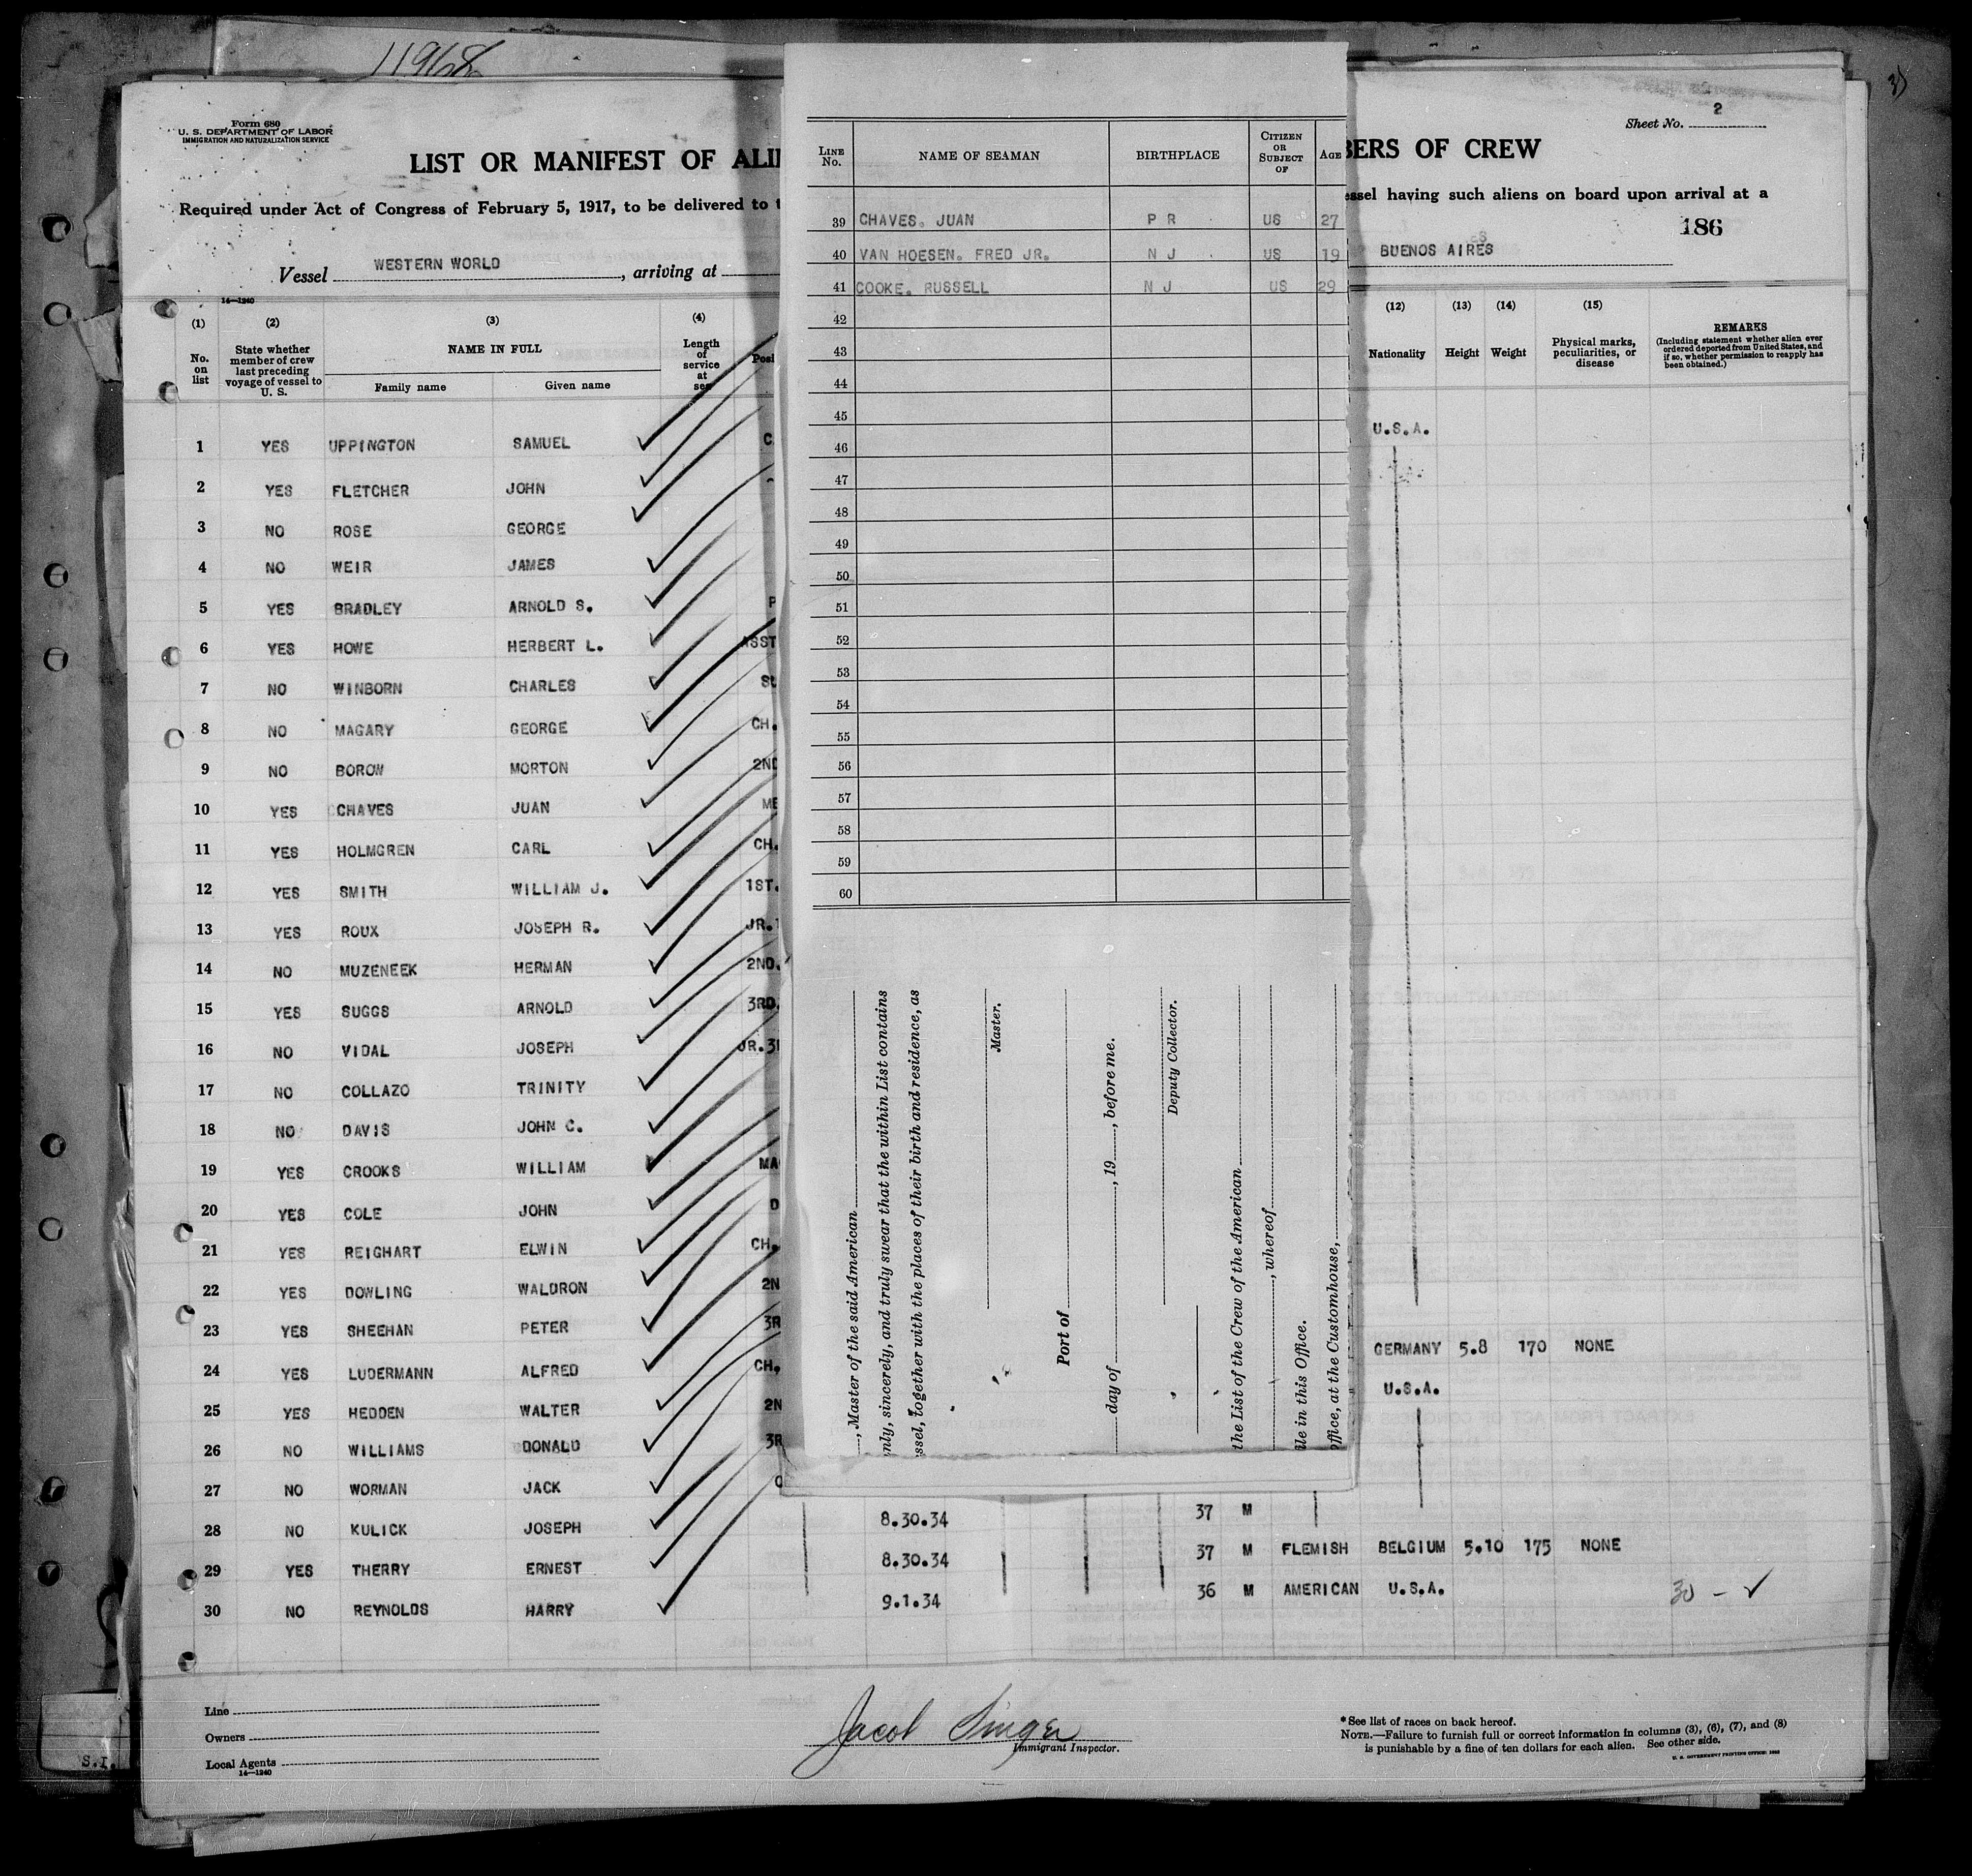 11968
Form 680
U. S. DEPARTMENT OF LABOR
IMMIGRATION AND NATURALIZATION SERVICE
Sheet No. 2
LIST OR MANIFEST OF ALI
BERS OF CREW
Required under Act of Congress of February 5, 1917, to be delivered to t
essel having such aliens on board upon arrival at a
186
Vessel WESTERN WORLD, arriving at
BUENOS AIRES
14—1240
(1) (2) (3) (4) (12) (13) (14) (15)
No. on list
State whether member of crew last preceding voyage of vessel to U. S.
NAME IN FULL
Family name Given name
Length of service at sea
Posi
Nationality Height Weight
Physical marks, peculiarities, or disease
REMARKS
(Including statement whether alien ever ordered deported from United States, and if so, whether permission to reapply has been obtained.)
1 YES UPPINGTON SAMUEL C U.S.A.
2 YES FLETCHER JOHN
3 NO ROSE GEORGE
4 NO WEIR JAMES
5 YES BRADLEY ARNOLD S. P
6 YES HOWE HERBERT L. ASST
7 NO WINBORN CHARLES
8 NO MAGARY GEORGE CH.
9 NO BOROW MORTON 2ND
10 YES CHAVES JUAN ME
11 YES HOLMGREN CARL CH.
12 YES SMITH WILLIAM J. 1ST.
13 YES ROUX JOSEPH R. JR.
14 NO MUZENEEK HERMAN 2ND.
15 YES SUGGS ARNOLD 3RD.
16 NO VIDAL JOSEPH JR.3
17 NO COLLAZO TRINITY
18 NO DAVIS JOHN C.
19 YES CROOKS WILLIAM MA
20 YES COLE JOHN D
21 YES REIGHART ELWIN CH.
22 YES DOWLING WALDRON 2N
23 YES SHEEHAN PETER 3R
24 YES LUDERMANN ALFRED CH. GERMANY 5.8 170 NONE
25 YES HEDDEN WALTER 2N U.S.A.
26 NO WILLIAMS DONALD 3R
27 NO WORMAN JACK
28 NO KULICK JOSEPH 8.30.34 37 M
29 YES THERRY ERNEST 8.30.34 37 M FLEMISH BELGIUM 5.10 175 NONE
30 NO REYNOLDS HARRY 9.1.34 36 M AMERICAN U.S.A. 30 - ✓
LINE No. NAME OF SEAMAN BIRTHPLACE CITIZEN OR SUBJECT OF AGE
39 CHAVES. JUAN P R US 27
40 VAN HOESEN. FRED JR. N J US 19
41 COOKE. RUSSELL N J US 29
42
43
44
45
46
47
48
49
50
51
52
53
54
55
56
57
58
59
60
, Master of the said American
nly, sincerely, and truly swear that the within List contains
ssel, together with the places of their birth and residence, as
Master.
Port of
day of , 19 , before me.
Deputy Collector.
the List of the Crew of the American
, whereof
ile in this Office.
office, at the Customhouse,
Line
Owners
Local Agents
14—1240
S.I.
Jacob Singer
Immigrant Inspector.
* See list of races on back hereof.
NOTE.—Failure to furnish full or correct information in columns (3), (6), (7), and (8)
is punishable by a fine of ten dollars for each alien. See other side.
U. S. GOVERNMENT PRINTING OFFICE